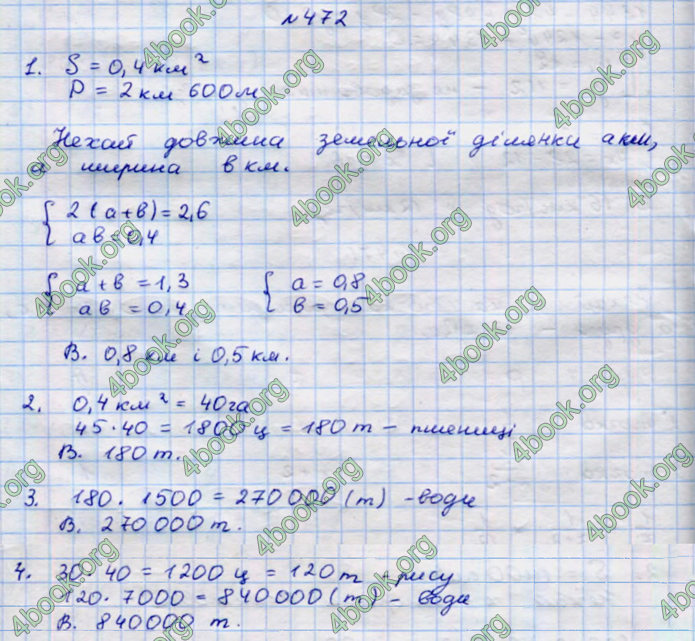 №472
1. S = 0,4 км²
P = 2 км 600 м
Нехай довжина земельної ділянки a км,
а ширина b км.
{ 2(a+b) = 2,6
ab = 0,4
{ a+b = 1,3 { a = 0,8
ab = 0,4 b = 0,5
В. 0,8 км і 0,5 км.
2. 0,4 км² = 40 га
45·40 = 1800 ц = 180 т – пшениці
В. 180 т.
3. 180 · 1500 = 270 000 (т) – води
В. 270 000 т.
4. 30·40 = 1200 ц = 120 т – рису
120·7000 = 840 000 (т) – води
В. 840000 т.
4book.org